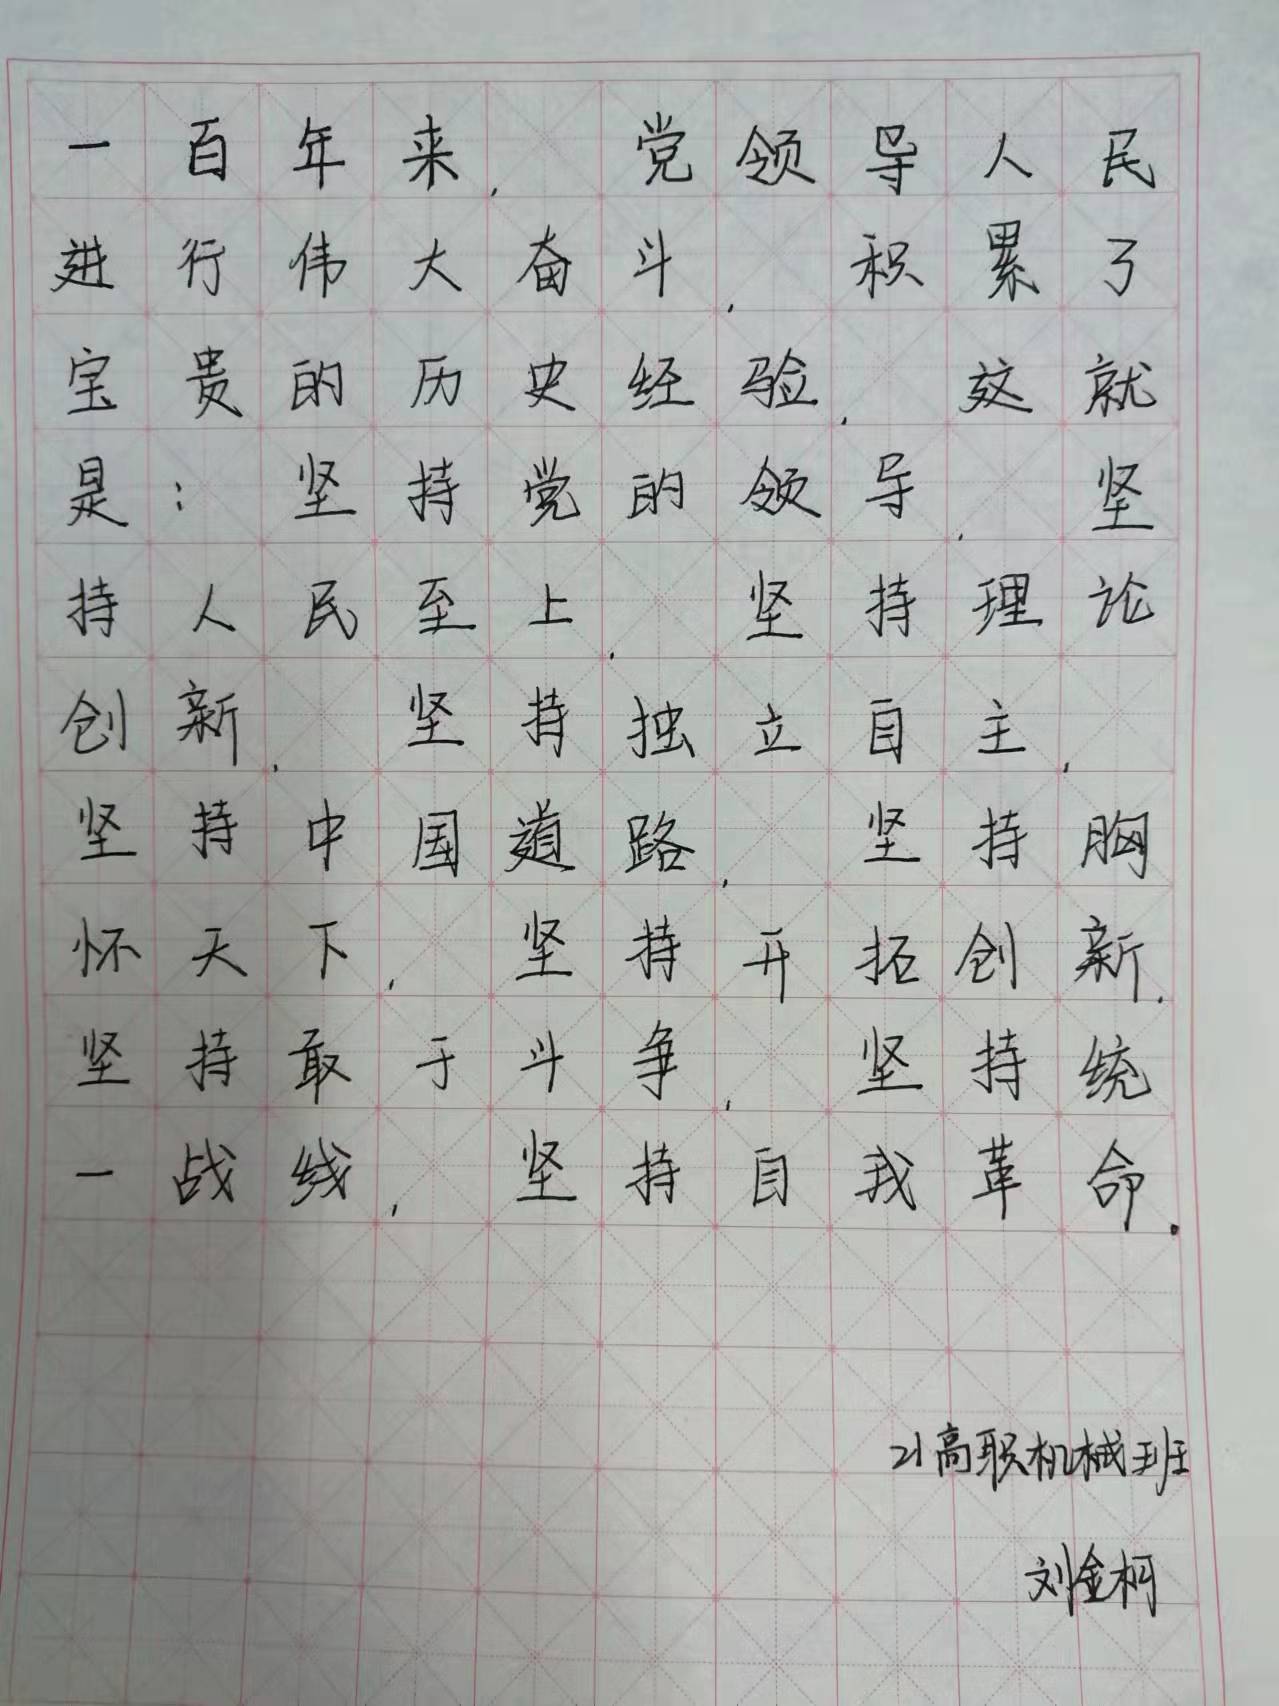 一百年来,党领导人民
进行伟大奋斗,积累了
宝贵的历史经验,这就
是:坚持党的领导,坚
持人民至上,坚持理论
创新,坚持独立自主,
坚持中国道路,坚持胸
怀天下,坚持开拓创新,
坚持敢于斗争,坚持统
一战线,坚持自我革命.
21高职机械班
刘金柯